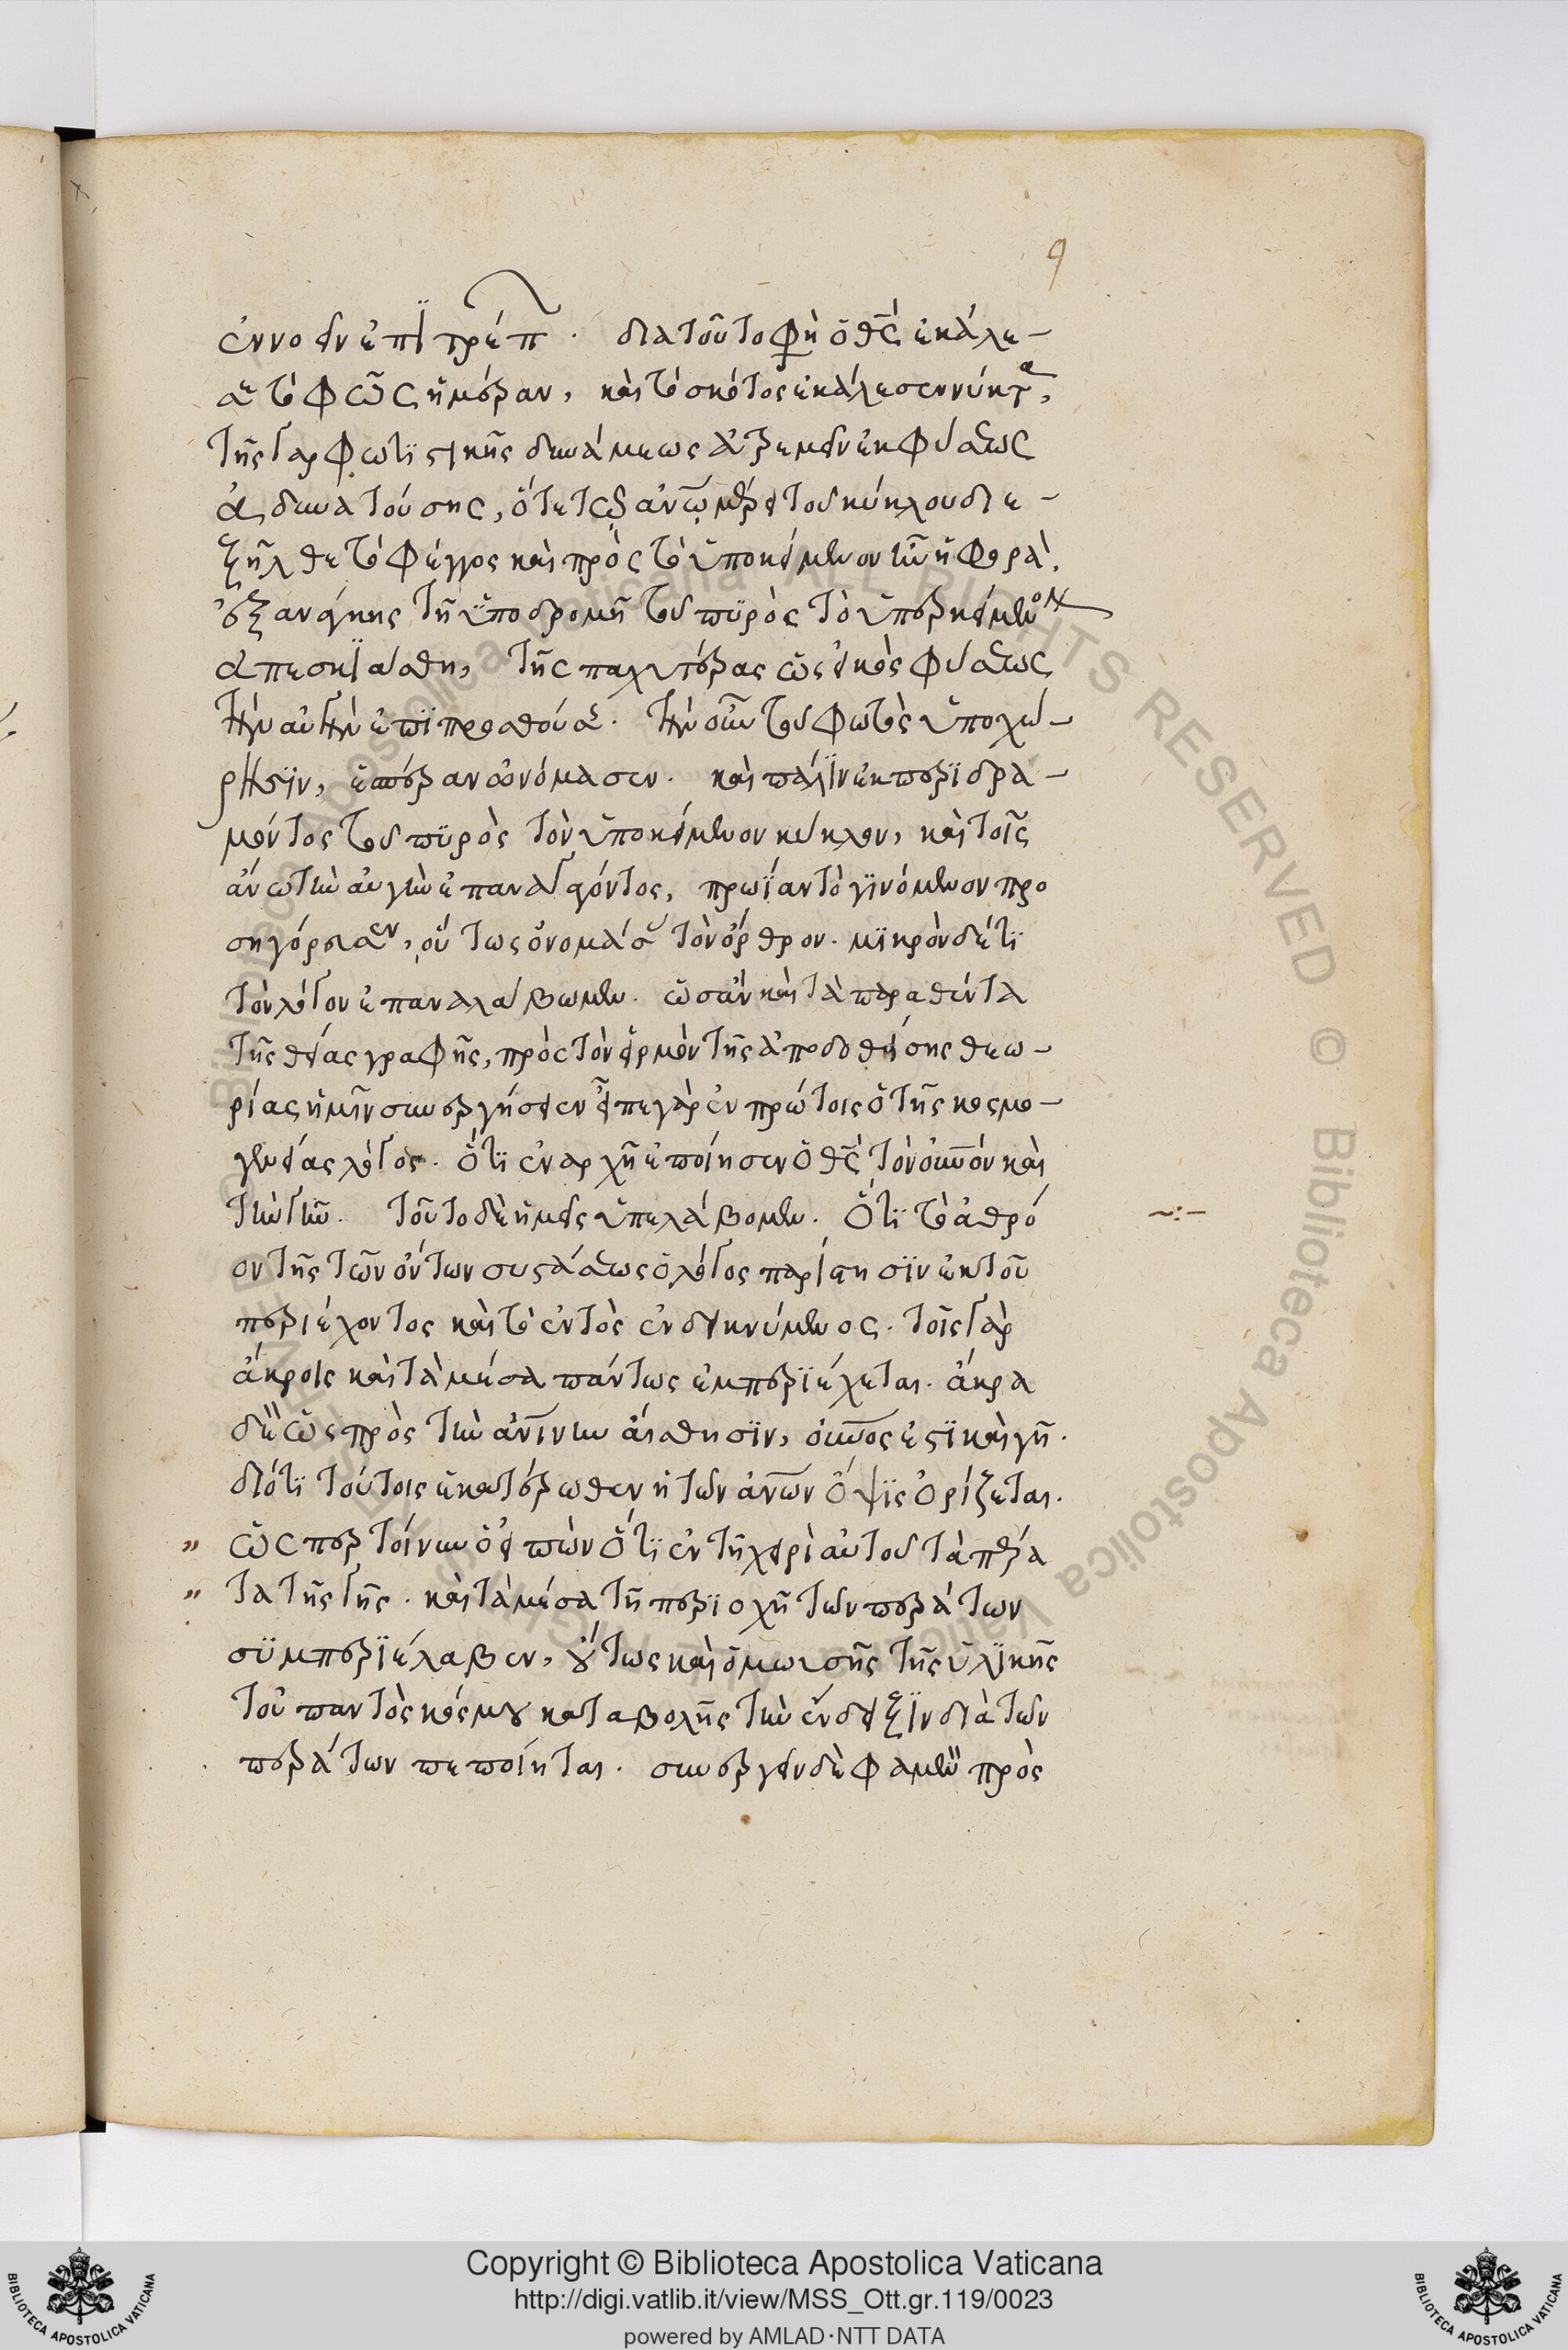 9
ἐννοεῖν ἐπιτρέπ. διατοῦτο φη ὁ θς ἐκάλε-
σε τὸ φῶς ἡμέραν, καὶ τὸ σκότος ἐκάλεσεν νύκτα,
τῆς γαρ φωτιστικῆς δυνάμεως ἀρεμεῖν ἐκ φύσεως
ἀδυνατούσης, ὅτε τῷ ἀνω μέρει τοῦ κύκλου διε-
ξῆλθε τὸ φέγγος καὶ πρὸς τὸ ὑποκείμενον ἦν ἡ φορὰ.
ἐξ ανάγκης τῆ ὑποδρομῆ τοῦ πυρὸς τὸ ὑπερκείμενον
ἀπεσκιάσθη, τῆς παχυτέρας ὡς εἰκὸς φύσεως
τὴν αὐγὴν ἐπιπροσθούσης. τὴν οὖν τοῦ φωτὸς ὑποχώ-
ρησιν, ἑσπέραν ὠνόμασεν. καὶ πάλιν ἐκπεριδρα-
μόντος τοῦ πυρὸς τὸν ὑποκείμενον κύκλον, καὶ τοῖς
ἀνω τὴν αυγὴν ἐπαναγαγόντος, πρωίαν τὸ γινόμενον προ
σηγόρευσεν, οὕτως ὀνομάσας τὸν ὄρθρον. μικρὸν δέ τι
τὸν λόγον ἐπαναλάβωμεν. ὡσὰν καὶ τὰ παραθέντα
τῆς θείας γραφῆς, πρὸς τὸν εἱρμὸν τῆς ἀποδοθείσης θεω-
ρίας ἡμῖν συνεργήσειεν εἶπε γὰρ ἐν πρώτοις ὁ τῆς κοσμο-
γενείας λόγος. ὅτι ἐν αρχῆ ἐποίησεν ὁ θς τὸν οὐνον καὶ
τὴν γῆν. τοῦτο δὲ ἡμεῖς ὑπελάβομεν. ὅτι τὸ ἀθρό
ον τῆς τῶν ὄντων συστάσεως ὁ λόγος παρίστησιν ἐκ τοῦ
περιέχοντος καὶ τὸ ἐντὸς ἐνδεικνύμενος. τοῖς γὰρ
ἄκροις καὶ τὰ μέσα πάντως ἐμπεριέχεται. ἄκρα
δὲ ὡς πρὸς τὴν ἀνίνην αἴσθησιν, οὐνος ἐστὶ καὶ γῆ.
διότι τούτοις ἑκατέρωθεν ἡ τῶν ἀνων ὄψις ὁρίζεται.
" ὥσπερ τοίνυν ὁ εἰπὼν ὅτι ἐν τῆ χειρὶ αὐτοῦ τὰ πέρα
" τα τῆς γῆς. καὶ τὰ μέσα τῆ περιοχῆ τῶν περάτων
συμπεριέλαβεν, οὕτως καὶ ὁ μωυσῆς τῆς ὑλικῆς
τοῦ παντὸς κόσμου καταβολῆς τὴν ἔνδειξιν διὰ τῶν
περάτων πεποίηται. συνεργεῖν δὲ φαμὲν πρὸς
Copyright © Biblioteca Apostolica Vaticana
http://digi.vatlib.it/view/MSS_Ott.gr.119/0023
powered by AMLAD·NTT DATA